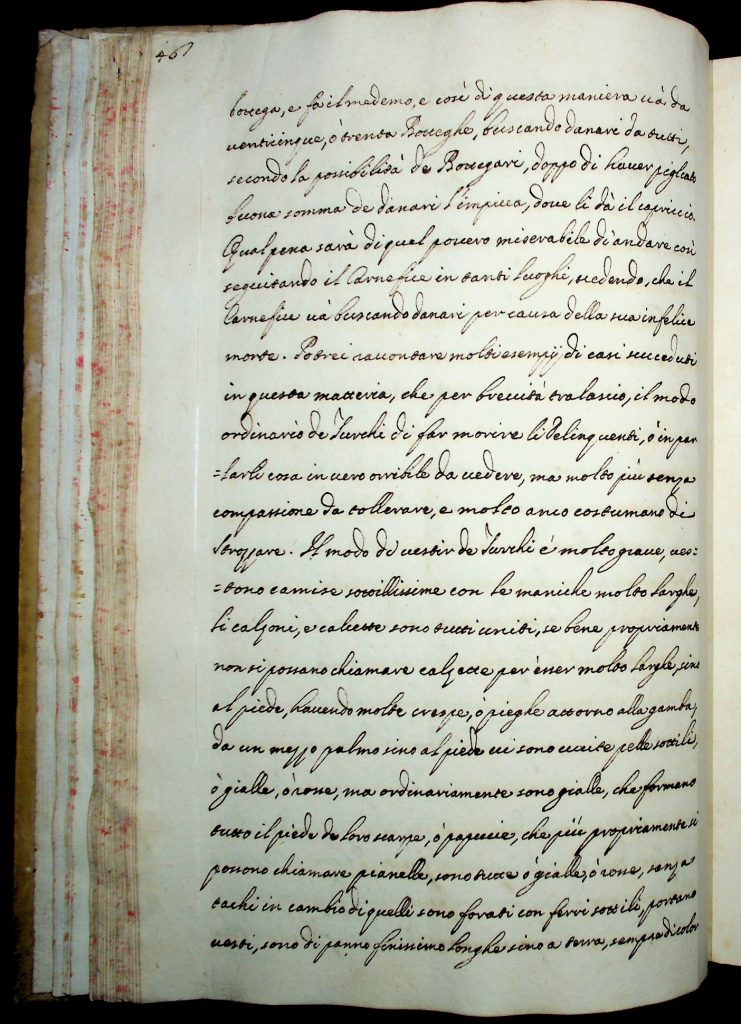 46
bottega, e fà il medemo, e così di questa maniera uà da
uenticinque, ò trenta Botteghe, buscando danari da tutti,
secondo la possibilità de Bottegari, doppo di hauer pigliato
buona somma de danari l'impicca, doue li dà il capriccio.
Qual pena sarà di quel pouero miserabile di andare così
seguitando il Carnefice in tanti luoghi, uedendo, che il
Carnefice uà buscando danari per causa della sua infelice
morte. Potrei raccontare molti esempij di casi succeduti
in questa matteria, che per breuità tralascio, il modo
ordinario de Turchi di far morire li Delinquenti, ò in par
=larli cosa in uero orribile da uedere, ma molto più senza
compassione da tollerare, e molto anco costumano di
strozzare. Il modo di uestir de Turchi è molto graue, ues=
=tono camise sottilissime con le maniche molto larghe,
li calzoni, e calzette sono tutti uniti, se bene propriamente
non si possano chiamare calzette per èsser molto larghe, sino
al piede, hauendo molte crespe, o pieghe attorno alla gamba,
da un mezzo palmo sino al piede ui sono cucite pelle sottili,
ò gialle, ò rosse, ma ordinariamente sono gialle, che formano
tutto il piede de loro scarpe, ò papuccie, che più propriamente si
possono chiamare pianelle, sono tutte ò gialle, ò rosse, senza
tachi in cambio di quelli sono forati con ferri sottili, portano
uesti, sono di panno finissimo longhe sino a terra, sempre di color